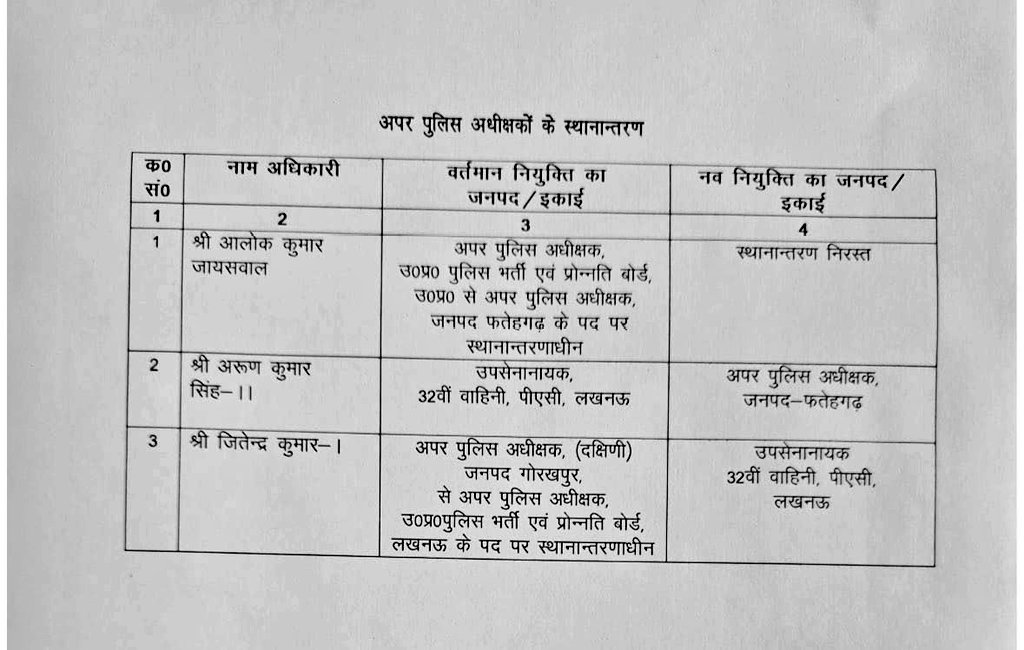 अपर पुलिस अधीक्षकों के स्थानान्तरण
क0 सं0
नाम अधिकारी
वर्तमान नियुक्ति का
जनपद / इकाई
नव नियुक्ति का जनपद /
इकाई
1
2
3
4
1
श्री आलोक कुमार
जायसवाल
अपर पुलिस अधीक्षक,
उ0प्र0 पुलिस भर्ती एवं प्रोन्नति बोर्ड,
उ0प्र0 से अपर पुलिस अधीक्षक,
जनपद फतेहगढ़ के पद पर
स्थानान्तरणाधीन
स्थानान्तरण निरस्त
2
श्री अरूण कुमार
सिंह–।।
उपसेनानायक,
32वीं वाहिनी, पीएसी, लखनऊ
अपर पुलिस अधीक्षक,
जनपद–फतेहगढ़
3
श्री जितेन्द्र कुमार–।
अपर पुलिस अधीक्षक, (दक्षिणी)
जनपद गोरखपुर,
से अपर पुलिस अधीक्षक,
उ0प्र0पुलिस भर्ती एवं प्रोन्नति बोर्ड,
लखनऊ के पद पर स्थानान्तरणाधीन
उपसेनानायक
32वीं वाहिनी, पीएसी,
लखनऊ